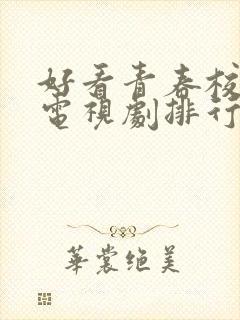 好看青春校
電視劇排行
華裳绝美